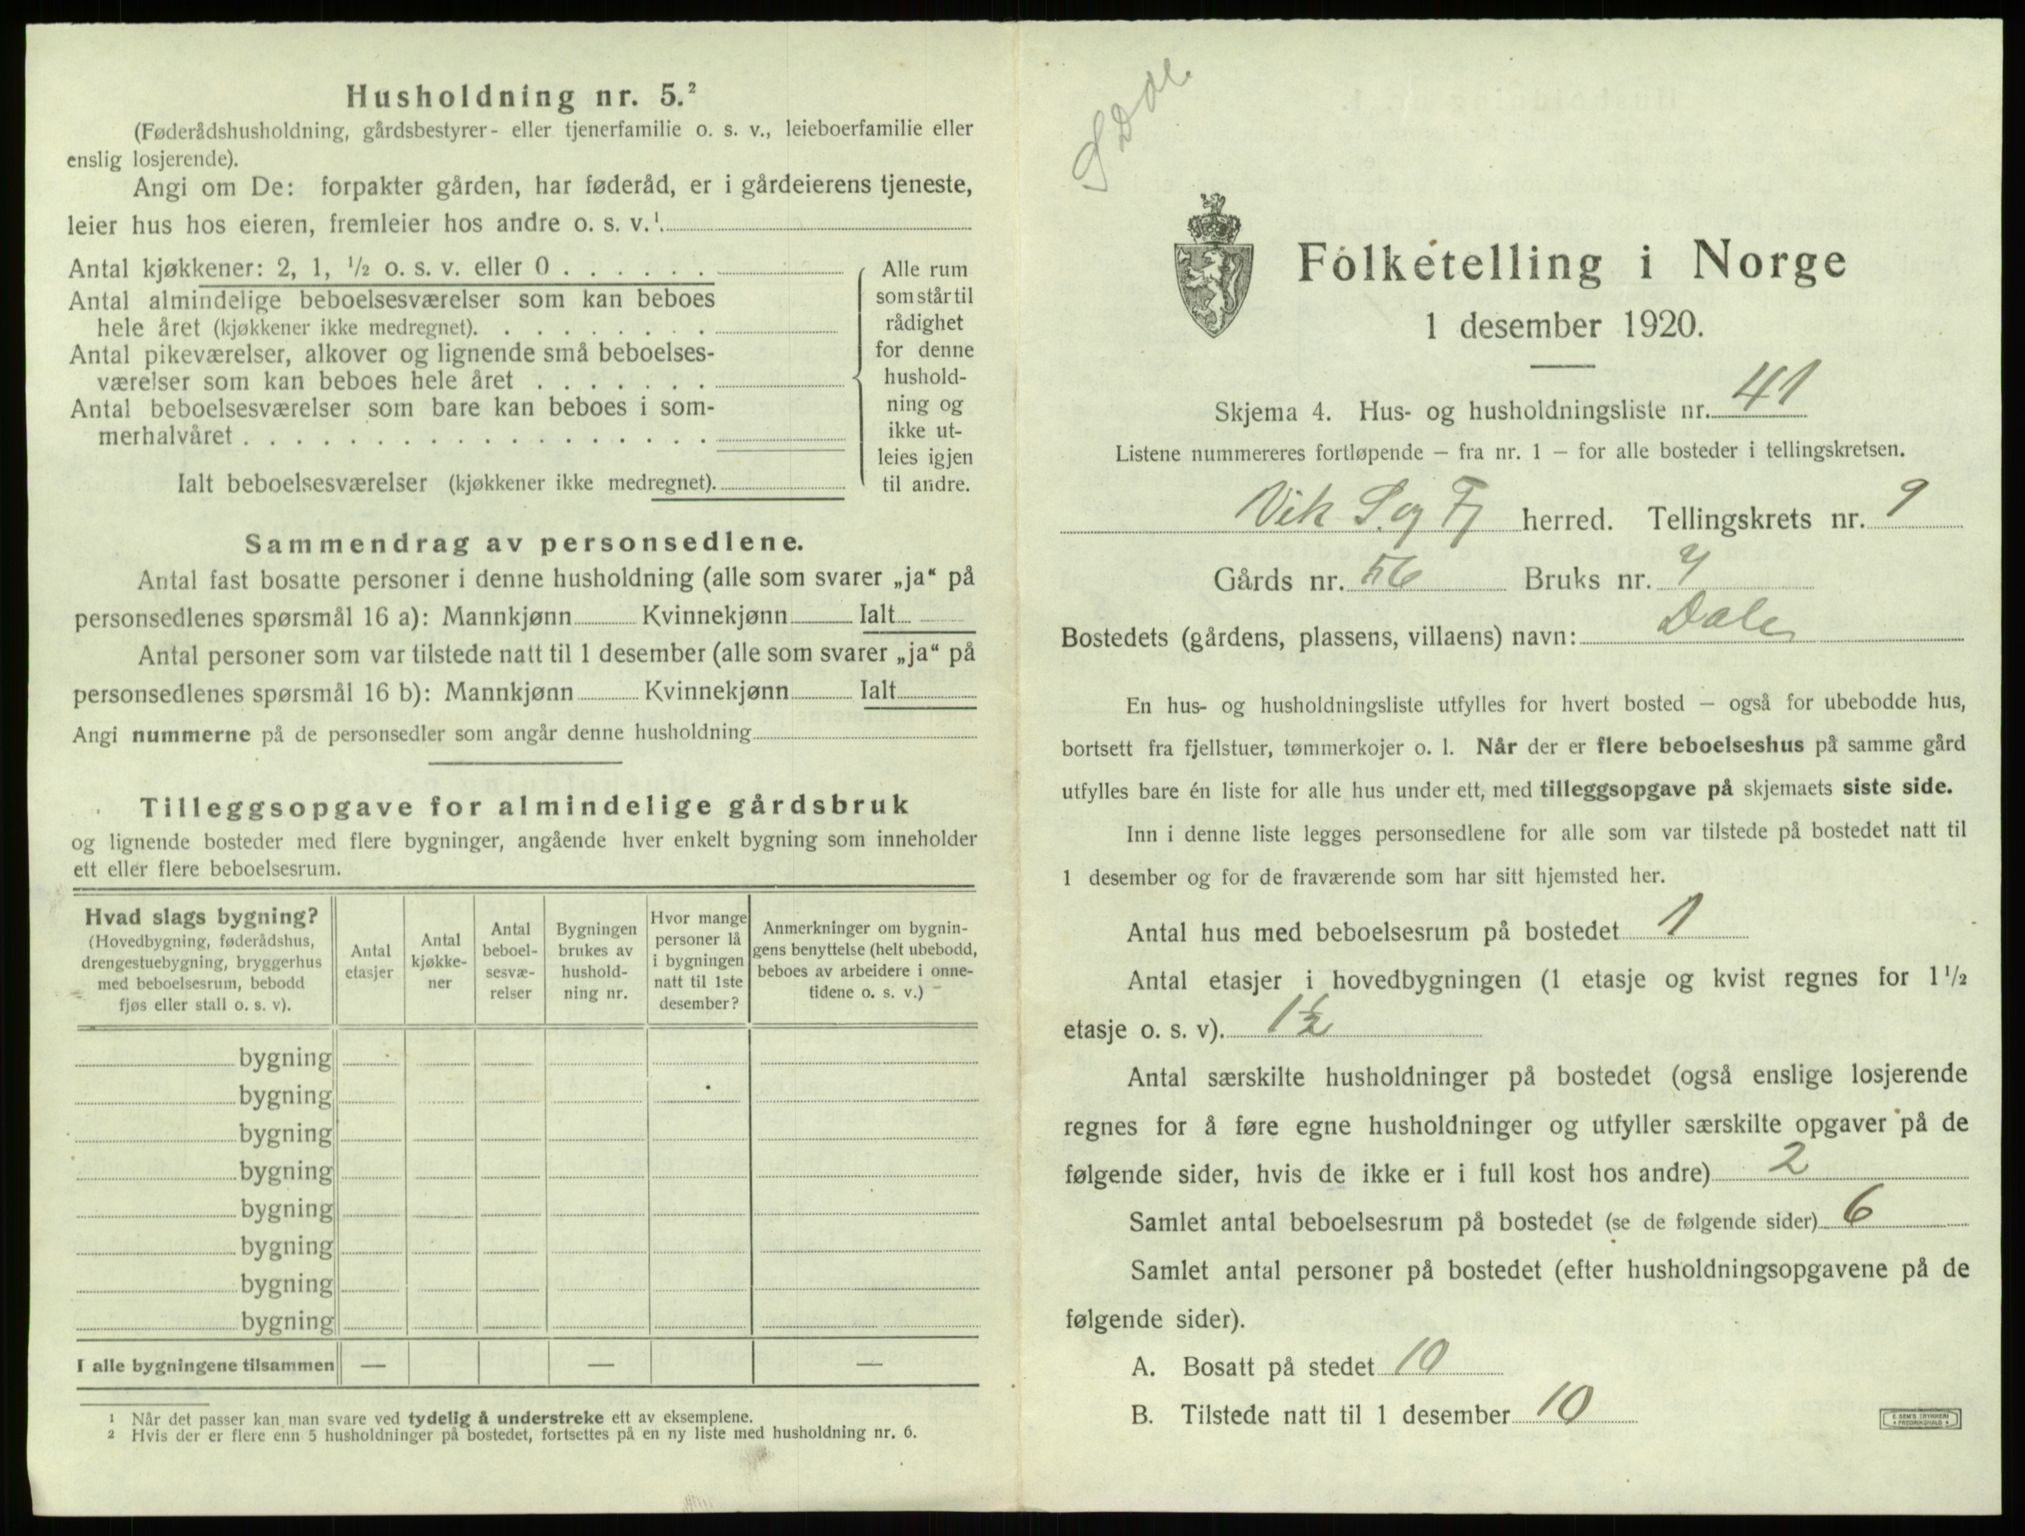 Husholdning nr. 5.²
(Føderådshusholdning, gårdsbestyrer- eller tjenerfamilie o. s. v., leieboerfamilie eller
enslig losjerende).
Angi om De: forpakter gården, har føderåd, er i gårdeierens tjeneste,
leier hus hos eieren, fremleier hos andre o. s. v.¹.
Antal kjøkkener: 2, 1, ½ o. s. v. eller 0 . . . . . .
Antal almindelige beboelsesværelser som kan beboes
hele året (kjøkkener ikke medregnet). . . . . . . . .
Antal pikeværelser, alkover og lignende små beboelses-
værelser som kan beboes hele året . . . . . . .
Antal beboelsesværelser som bare kan beboes i som-
merhalvåret . . . . . . . . . . . . . . . . . .
Ialt beboelsesværelser (kjøkkener ikke medregnet).
Alle rum
som står til
rådighet
for denne
hushold-
ning og
ikke ut-
leies igjen
til andre.
Sammendrag av personsedlene.
Antal fast bosatte personer i denne husholdning (alle som svarer „ja“ på
personsedlenes spørsmål 16 a): Mannkjønn Kvinnekjønn Ialt
Antal personer som var tilstede natt til 1 desember (alle som svarer „ja“ på
personsedlenes spørsmål 16 b): Mannkjønn Kvinnekjønn Ialt
Angi nummerne på de personsedler som angår denne husholdning
Tilleggsopgave for almindelige gårdsbruk
og lignende bosteder med flere bygninger, angående hver enkelt bygning som inneholder
ett eller flere beboelsesrum.
Hvad slags bygning?
(Hovedbygning, føderådshus,
drengestuebygning, bryggerhus
med beboelsesrum, bebodd
fjøs eller stall o. s. v).
Antal
etasjer
Antal
kjøkke-
ner
Antal
beboel-
sesvæ-
relser
Bygningen
brukes av
hushold-
ning nr.
Hvor mange
personer lå
i bygningen
natt til 1ste
desember?
Anmerkninger om bygnin-
gens benyttelse (helt ubebodd,
beboes av arbeidere i onne-
tidene o. s. v.)
bygning
bygning
bygning
bygning
bygning
bygning
bygning
bygning
I alle bygningene tilsammen — — —
¹ Når det passer kan man svare ved tydelig å understreke ett av eksemplene.
² Hvis der er flere enn 5 husholdninger på bostedet, fortsettes på en ny liste med husholdning nr. 6.
Folketelling i Norge
1 desember 1920.
Skjema 4. Hus- og husholdningsliste nr. 41
Listene nummereres fortløpende – fra nr. 1 – for alle bosteder i tellingskretsen.
Vik S. og Fj herred. Tellingskrets nr. 9
Gårds nr. 56 Bruks nr.
Bostedets (gårdens, plassens, villaens) navn: Dale
En hus- og husholdningsliste utfylles for hvert bosted – også for ubebodde hus,
bortsett fra fjellstuer, tømmerkojer o. l. Når der er flere beboelseshus på samme gård
utfylles bare én liste for alle hus under ett, med tilleggsopgave på skjemaets siste side.
Inn i denne liste legges personsedlene for alle som var tilstede på bostedet natt til
1 desember og for de fraværende som har sitt hjemsted her.
Antal hus med beboelsesrum på bostedet 1
Antal etasjer i hovedbygningen (1 etasje og kvist regnes for 1½
etasje o. s. v). 1½
Antal særskilte husholdninger på bostedet (også enslige losjerende
regnes for å føre egne husholdninger og utfyller særskilte opgaver på de
følgende sider, hvis de ikke er i full kost hos andre) 2
Samlet antal beboelsesrum på bostedet (se de følgende sider) 6
Samlet antal personer på bostedet (efter husholdningsopgavene på de
følgende sider).
A. Bosatt på stedet 10
B. Tilstede natt til 1 desember 10